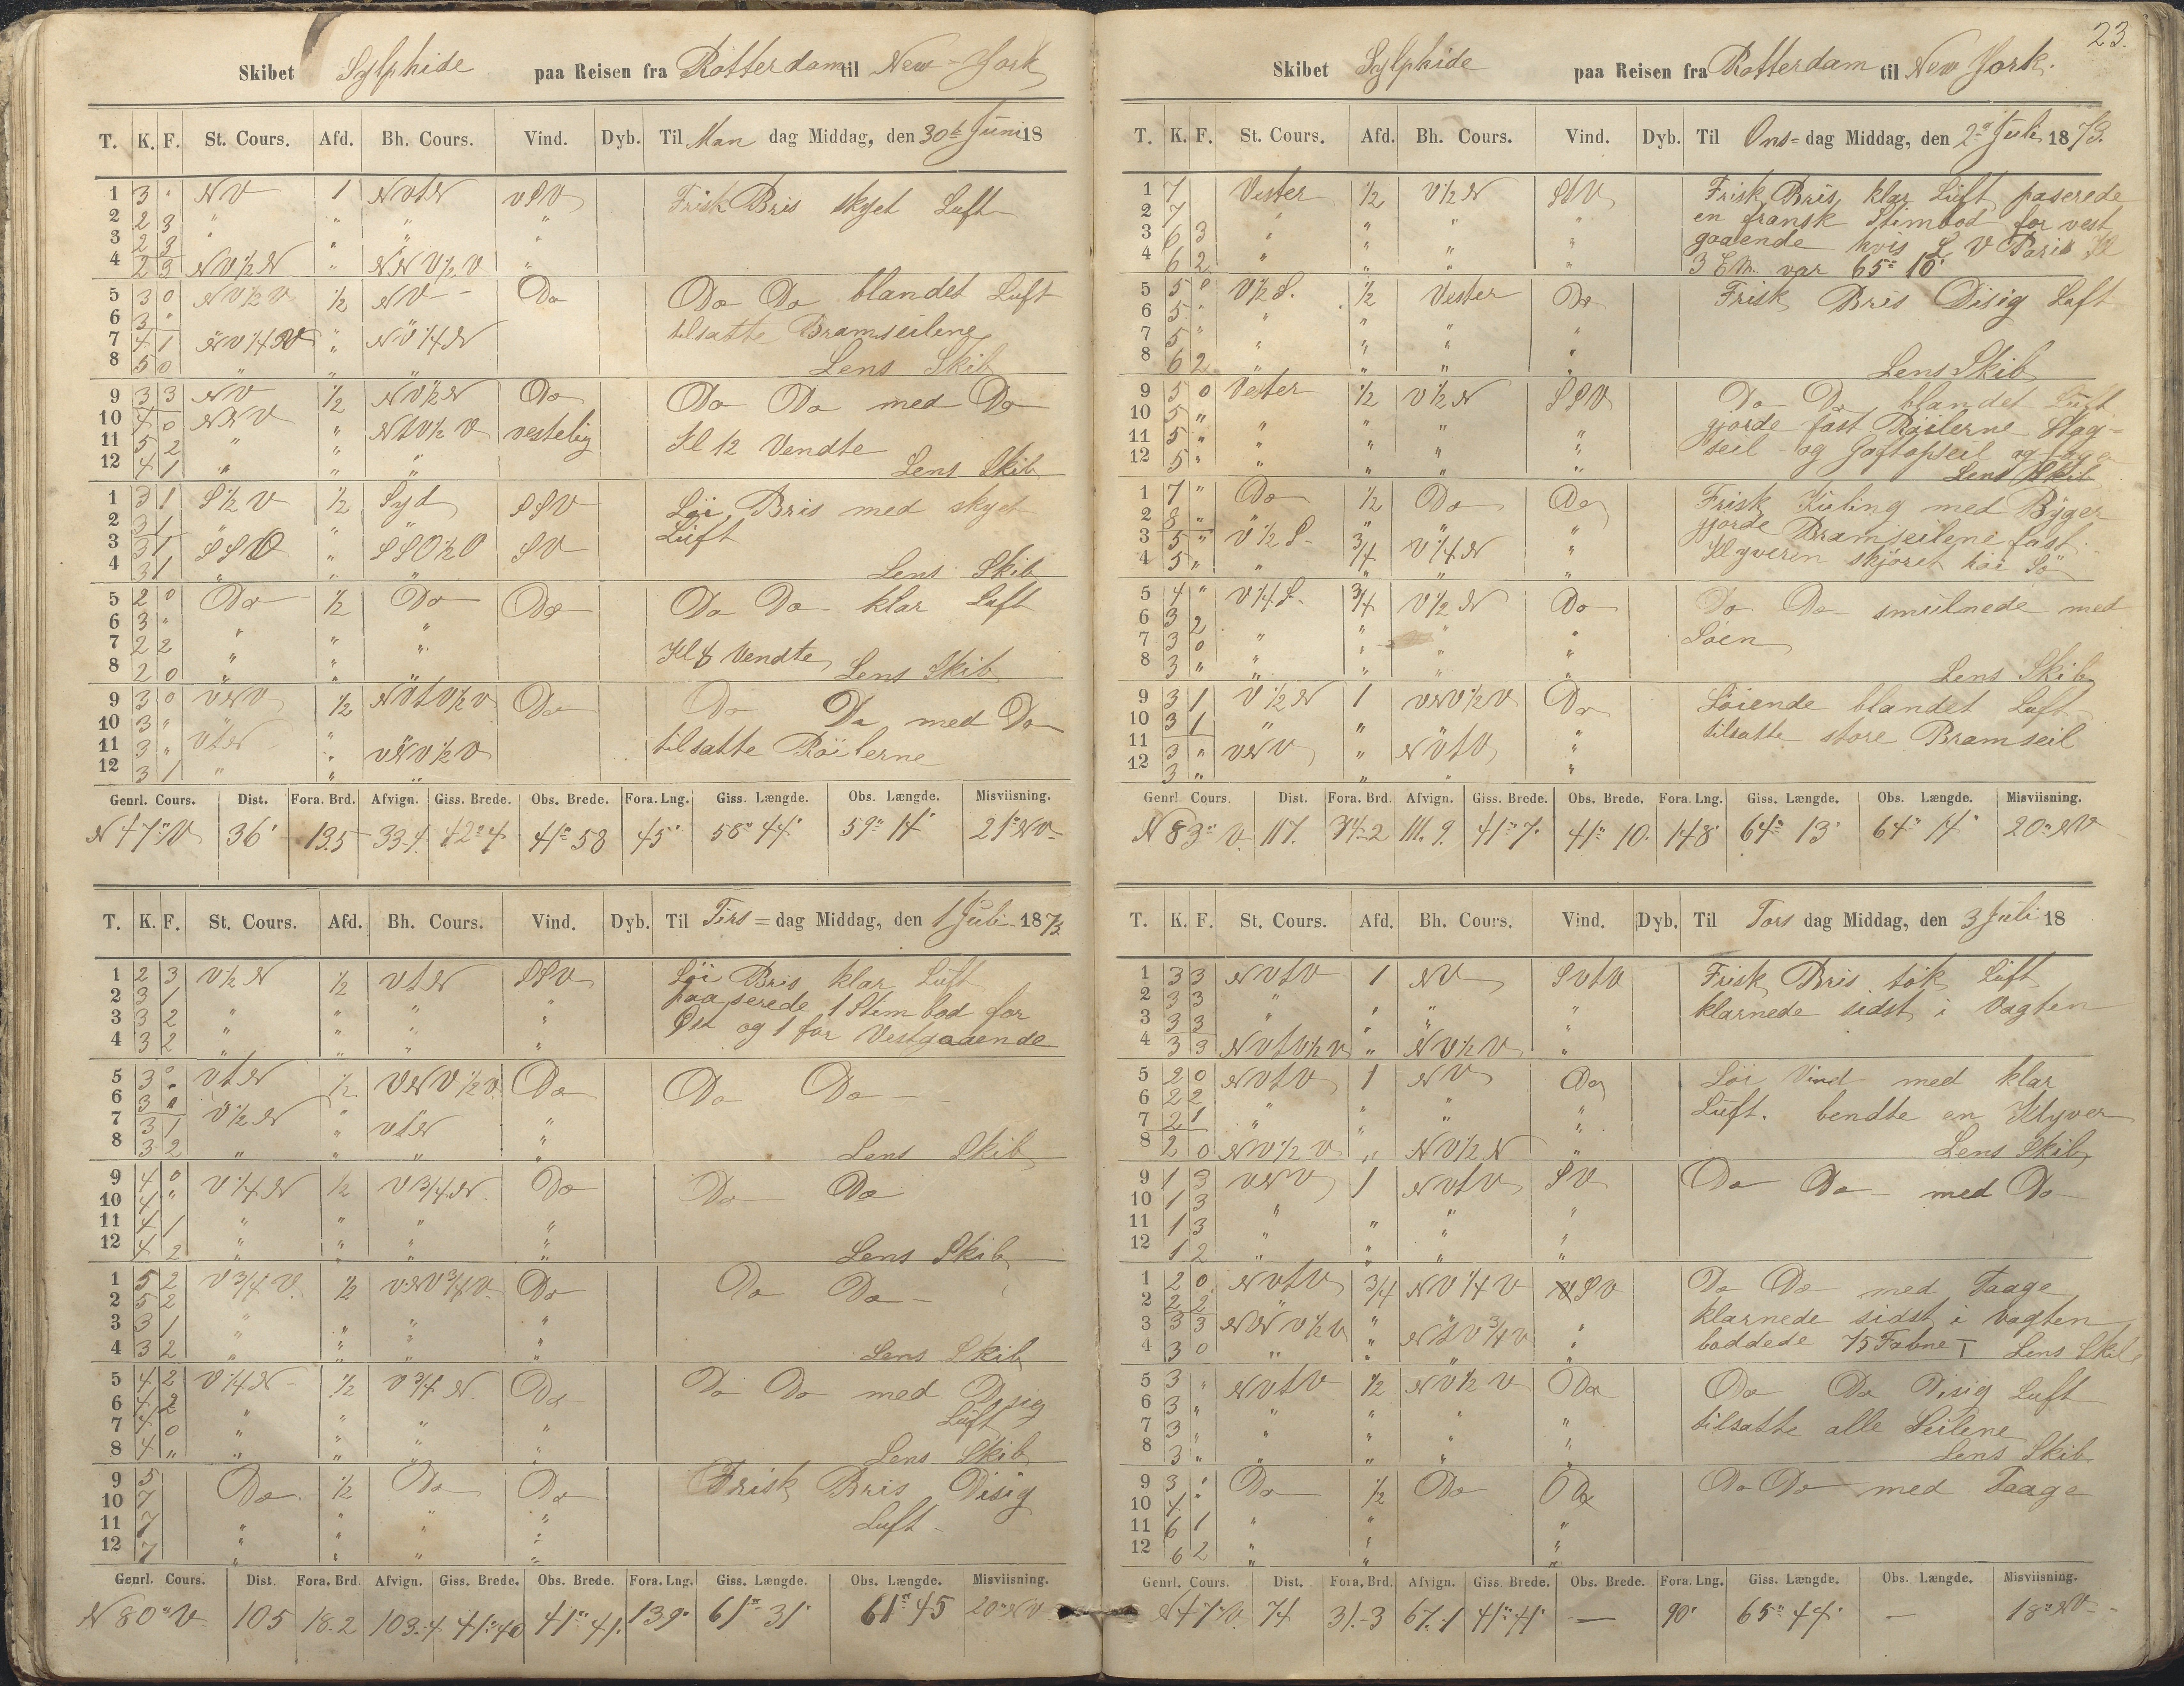 Skibet Sylphide paa Reisen fra Rotterdam til New-York
T. K. F. St. Cours. Afd. Bh. Cours. Vind. Dyb. Til Man dag Middag, den 30te Juni 18
1 3 " NV 1 NVtN VSV Frisk Bris skyet Luft
2 2 3 " " " "
3 2 3 " " " "
4 2 3 NV½N " NNV½V "
5 3 0 NV½V ½ NV Do Do Do blandet Luft
6 3 "
7 4 1 NV¼V " NV¼N tilsatte Bramseilene
8 5 0 " " " Lens Skib
9 3 3 NV ½ NV½N Do Do Do med Do
10 4 0 NNV " NtV½V vestelig
11 5 2 " " " Kl 12 Vendte
12 4 1 " " " Lens Skib
1 3 1 S½V ½ Syd SSV Löi Bris med skyet
2 3 1 " " " Luft
3 3 1 SSO " SSO½O SV
4 3 1 " " " Lens Skib
5 2 0 Do ½ Do Do Do Do klar Luft
6 3 " " "
7 2 2 " " " Kl 8 Vendte
8 2 0 " " " Lens Skib
9 3 0 VNV ½ NVtV½V Do Do Do med Do
10 3 " " " tilsatte Röilerne
11 3 " VtN " VNV½V
12 3 1 " " "
Genrl. Cours. Dist. Fora. Brd. Afvign. Giss. Brede. Obs. Brede. Fora. Lng. Giss. Længde. Obs. Længde. Misviisning.
N47°V 36' 13.5 33.4 42°4 41°58 45' 58°44' 59°14' 21°NV
T. K. F. St. Cours. Afd. Bh. Cours. Vind. Dyb. Til Tirs= dag Middag, den 1 Juli 1873
1 2 3 V½N ½ VtN SSV Löi Bris klar Luft
2 3 1 " " " paaserede 1 Stimbod for
3 3 2 " " " " Øst og 1 for Vestgaaende
4 3 2 " " " "
5 3 0 VtN ½ VNV½V Do Do Do
6 3 0
7 3 1 V½N " VtN "
8 3 2 " " " " Lens Skib
9 4 0 V¼N ½ V¾N Do Do Do
10 4 "
11 4 1 " " " "
12 4 2 " " " " Lens Skib
1 5 2 V¾V ½ VNV¾V Do Do Do
2 5 2 "
3 3 1 " " " "
4 3 2 " " " " Lens Skib
5 4 2 V¼N ½ V¾N Do Do Do med Disig
6 4 2 Luft
7 4 0 " " " "
8 4 " " " " " Lens Skib
9 5 Do ½ Do Do Frisk Bris Disig
10 7 Luft
11 7 " " " "
12 7 " " " "
Genrl. Cours. Dist. Fora. Brd. Afvign. Giss. Brede. Obs. Brede. Fora. Lng. Giss. Længde. Obs. Længde. Misviisning.
N80°V 105 18.2 103.4 41°40 41°41' 139' 61°31' 61°45 20°NV
23.
Skibet Sylphide paa Reisen fra Rotterdam til New York.
T. K. F. St. Cours. Afd. Bh. Cours. Vind. Dyb. Til Ons= dag Middag, den 2den Juli 1873.
1 7 Vester ½ V½N SSV Frisk Bris klar Luft paserede
2 7 " " " " en fransk Stimbod for vest
3 6 3 " " " " gaaende hvis L V Paris Kl
4 6 2 " " " " 3 EM. var 65° 10'
5 5 0 V½S. ½ Vester Do Frisk Bris Disig Luft
6 5 " " "
7 5 " " " " "
8 6 2 " " " " Lens Skib
9 5 0 Vester ½ V½N SSV Do Do blandet Luft
10 5 " " " " gjorde fast Röilerne Stag-
11 5 " " " " " seil og Gaftopseil og
12 5 " " " " " Lens Skib
1 7 " Do ½ Do Do Frisk Kuling med Byger
2 8 " " " " " gjorde Bramseilene fast
3 5 " V½S ¾ V¼N " Klyveren skjöret höi Sö
4 5 " " " " "
5 4 " V¼S ¾ V½N Do Do Do smulnede med
6 3 2 Söen
7 3 0 " " " "
8 3 " " " " " Lens Skib
9 3 1 V½N 1 VNV½V Do Löiende blandet Luft
10 3 1 " " " tilsatte store Bramseil
11 3 " VNV " NVtV "
12 3 " " " "
Genrl Cours. Dist. Fora. Brd. Afvign. Giss. Brede. Obs. Brede. Fora. Lng. Giss. Længde. Obs. Længde. Misviisning.
N83°V. 117. 34.2 111.9. 41°7' 41°10. 148' 64°13' 64°14' 20°NV
T. K. F. St. Cours. Afd. Bh. Cours. Vind. Dyb. Til Tors dag Middag, den 3 Juli 18
1 3 3 NVtV 1 NV SVtV Frisk Bris tök Luft
2 3 3 " " " " klarnede sidst i Vagten
3 3 3 " "
4 3 3 NVtV½V " NV½V "
5 2 0 NVtV 1 NV Do Löi Vind med klar
6 2 2 " " " " Luft. bendte en Klyver
7 2 1 " " " "
8 2 0 NV½V " NV½N " Lens Skib
9 1 3 VNV 1 NVtV SV Do Do med Do
10 1 3 " " "
11 1 3 " " " "
12 1 2 " " " "
1 2 0 NVtV ¾ NV¼V VSV Do Do med Taage
2 2 2 " " klarnede sidst i Vagten
3 3 3 NVV½V " NtV¾V " loddede 75 Fabne Lens Skib
4 3 0 " " " "
5 3 " NVtV ½ NV½V Do Do Do Disig Luft
6 3 " " " " " tilsatte alle Seilene
7 3 " " " " "
8 3 " " " " " Lens Skib
9 3 " Do ½ Do Do Do Do med Taage
10 4 "
11 6 1 " " "
12 6 2 " " "
Genrl. Cours. Dist. Fora. Brd. Afvign. Giss. Brede. Obs. Brede. Fora. Lng. Giss. Længde. Obs. Længde. Misviisning.
N47°V. 74 31.3 67.1 41°41' — 90' 65°44' — 18°NV